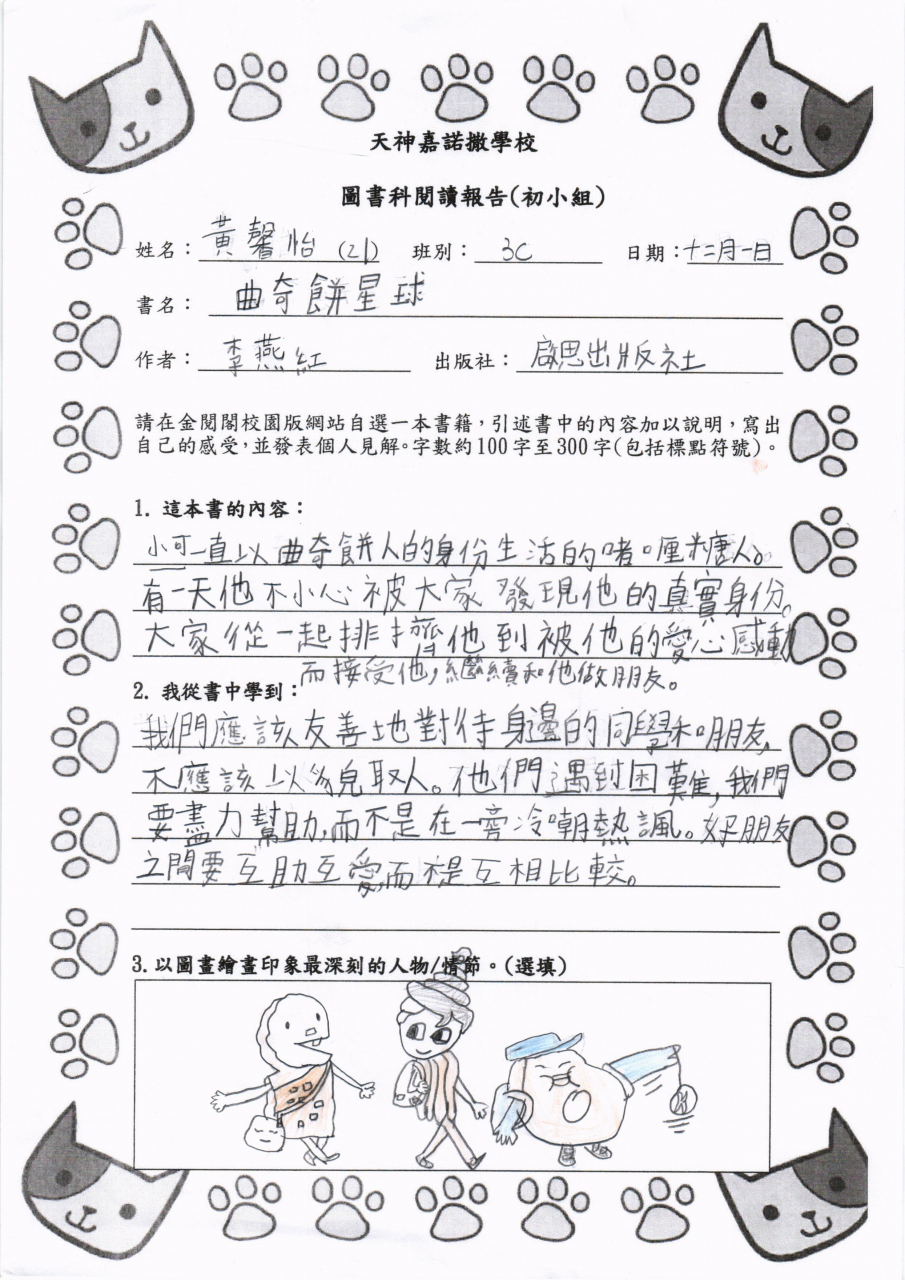 天神嘉諾撒學校
圖書科閱讀報告(初小組)
姓名：黃馨怡 (21) 班別：3C 日期：十二月一日
書名：曲奇餅星球
作者：李燕紅 出版社：啟思出版社
請在金閱閣校園版網站自選一本書籍，引述書中的內容加以說明，寫出
自己的感受，並發表個人見解。字數約100字至300字(包括標點符號)。
1. 這本書的內容：
小可一直以曲奇餅人的身份生活的啫喱糖人。
有一天他不小心被大家發現他的真實身份。
大家從一起排擠他到被他的愛心感動
而接受他，繼續和他做朋友。
2. 我從書中學到：
我們應該友善地對待身邊的同學和朋友，
不應該以貌取人。他們遇到困難，我們
要盡力幫助，而不是在一旁冷嘲熱諷。好朋友
之間要互助互愛，而不是互相比較。
3. 以圖畫繪畫印象最深刻的人物/情節。(選填)